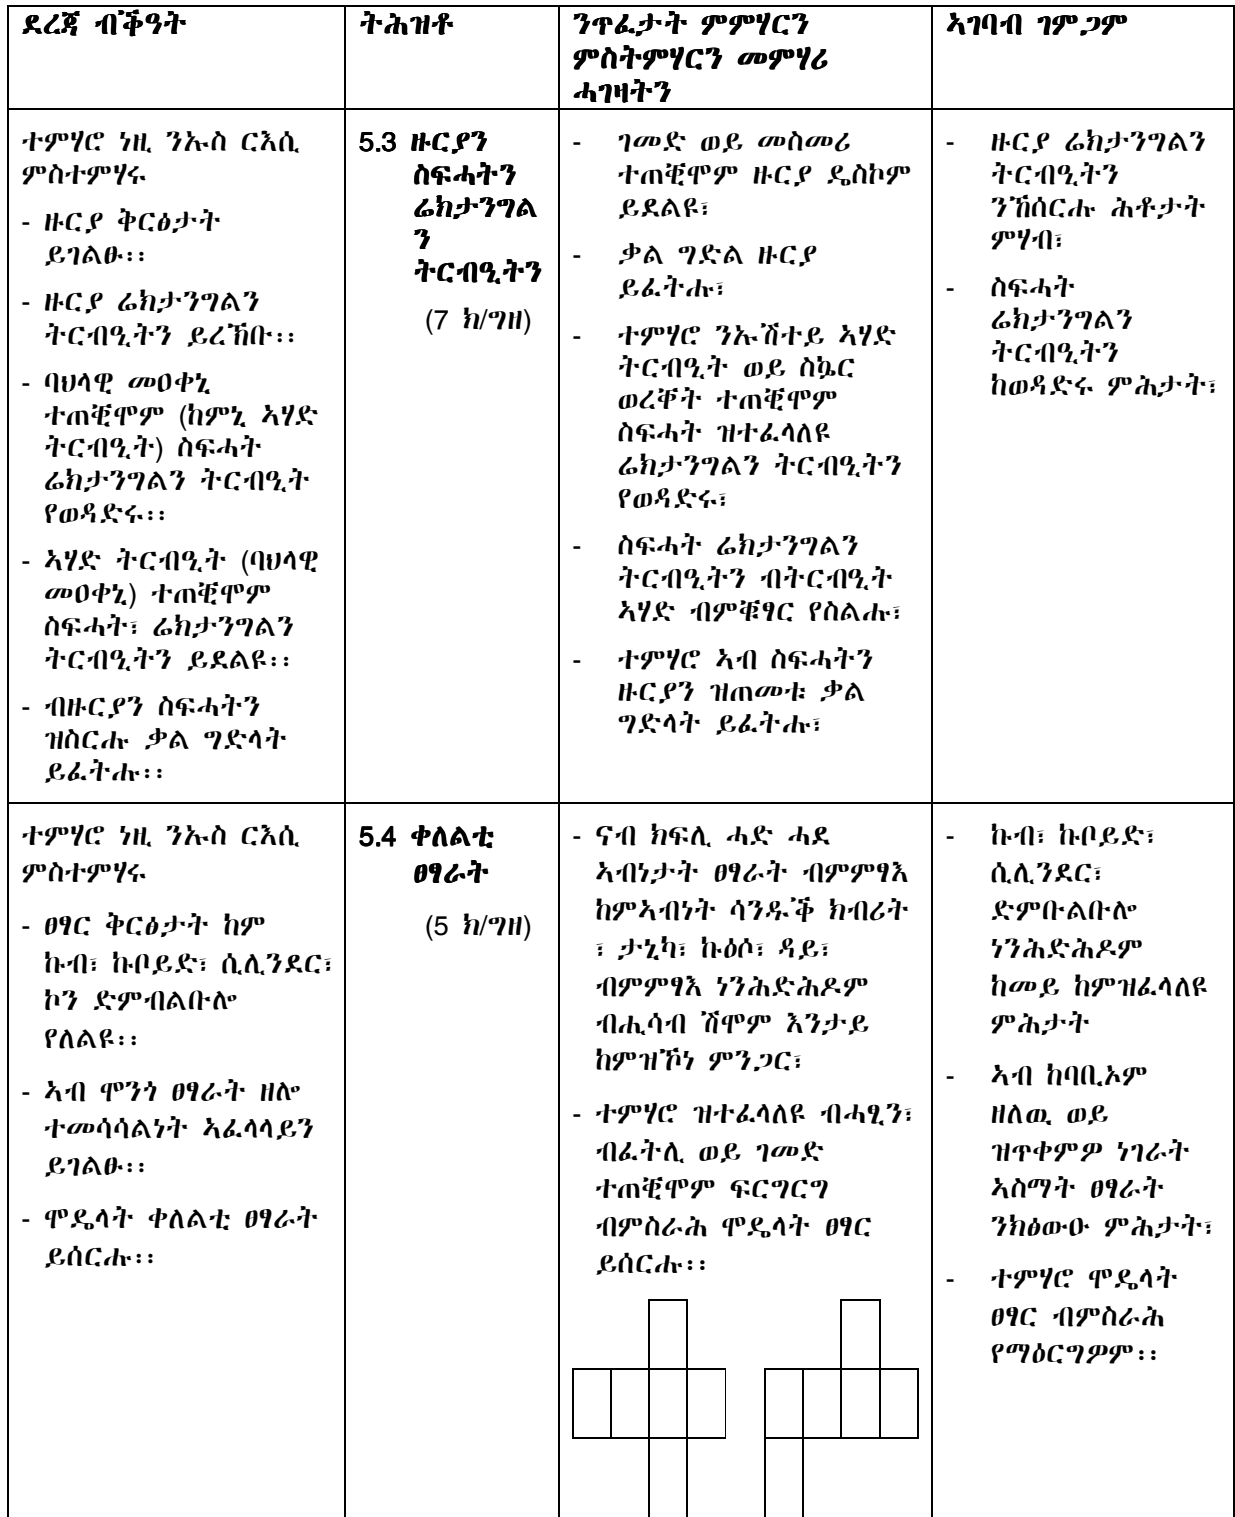 ደረጃ ብቕዓት
ትሕዝቶ
ንጥፈታት ምምሃርን
ምስትምሃርን መምሃሪ
ሓገዛትን
ኣገባብ ገምጋም
ተምሃሮ ነዚ ንኡስ ርእሲ
ምስተምሃሩ
- ዙርያ ቅርፅታት
ይገልፁ፡፡
- ዙርያ ሬክታንግልን
ትርብዒትን ይረኽቡ፡፡
- ባህላዊ መዐቀኒ
ተጠቒሞም (ከምኒ ኣሃድ
ትርብዒት) ስፍሓት
ሬክታንግልን ትርብዒት
የወዳድሩ፡፡
- ኣሃድ ትርብዒት (ባህላዊ
መዐቀኒ) ተጠቒሞም
ስፍሓት፣ ሬክታንግልን
ትርብዒትን ይደልዩ፡፡
- ብዙርያን ስፍሓትን
ዝስርሑ ቃል ግድላት
ይፈትሑ፡፡
5.3 ዙርያን
ስፍሓትን
ሬክታንግል
ን
ትርብዒትን
(7 ክ/ግዘ)
- ገመድ ወይ መስመሪ
ተጠቒሞም ዙርያ ዴስኮም
ይደልዩ፣
- ቃል ግድል ዙርያ
ይፈትሑ፣
- ተምሃሮ ንኡሽተይ ኣሃድ
ትርብዒት ወይ ስኴር
ወረቐት ተጠቒሞም
ስፍሓት ዝተፈላለዩ
ሬክታንግልን ትርብዒትን
የወዳድሩ፣
- ስፍሓት ሬክታንግልን
ትርብዒትን ብትርብዒት
ኣሃድ ብምቑፃር የስልሑ፣
- ተምሃሮ ኣብ ስፍሓትን
ዙርያን ዝጠመቱ ቃል
ግድላት ይፈትሑ፣
- ዙርያ ሬክታንግልን
ትርብዒትን
ንኽሰርሑ ሕቶታት
ምሃብ፣
- ስፍሓት
ሬክታንግልን
ትርብዒትን
ከወዳድሩ ምሕታት፣
ተምሃሮ ነዚ ንኡስ ርእሲ
ምስተምሃሩ
- ፀፃር ቅርፅታት ከም
ኩብ፣ ኩቦይድ፣ ሲሊንደር፣
ኮን ድምብልቡሎ
የለልዩ፡፡
- ኣብ ሞንጎ ፀፃራት ዘሎ
ተመሳሳልነት ኣፈላላይን
ይገልፁ፡፡
- ሞዴላት ቀለልቲ ፀፃራት
ይሰርሑ፡፡
5.4 ቀለልቲ
ፀፃራት
(5 ክ/ግዘ)
- ናብ ክፍሊ ሓድ ሓደ
ኣብነታት ፀፃራት ብምምፃእ
ከምኣብነት ሳንዱቕ ክብሪት
፣ ታኒካ፣ ኩዕሶ፣ ዳይ፣
ብምምፃእ ነንሕድሕዶም
ብሒሳብ ሽሞም እንታይ
ከምዝኾነ ምንጋር፣
- ተምሃሮ ዝተፈላለዩ ብሓፂን፣
ብፈትሊ ወይ ገመድ
ተጠቒሞም ፍርግርግ
ብምስራሕ ሞዴላት ፀፃር
ይሰርሑ፡፡
- ኩብ፣ ኩቦይድ፣
ሲሊንደር፣
ድምቡልቡሎ
ነንሕድሕዶም
ከመይ ከምዝፈላለዩ
ምሕታት
- ኣብ ከባቢኦም
ዘለዉ ወይ
ዝጥቀምዎ ነገራት
ኣስማት ፀፃራት
ንክፅውዑ ምሕታት፣
- ተምሃሮ ሞዴላት
ፀፃር ብምስራሕ
የማዕርግዎም፡፡